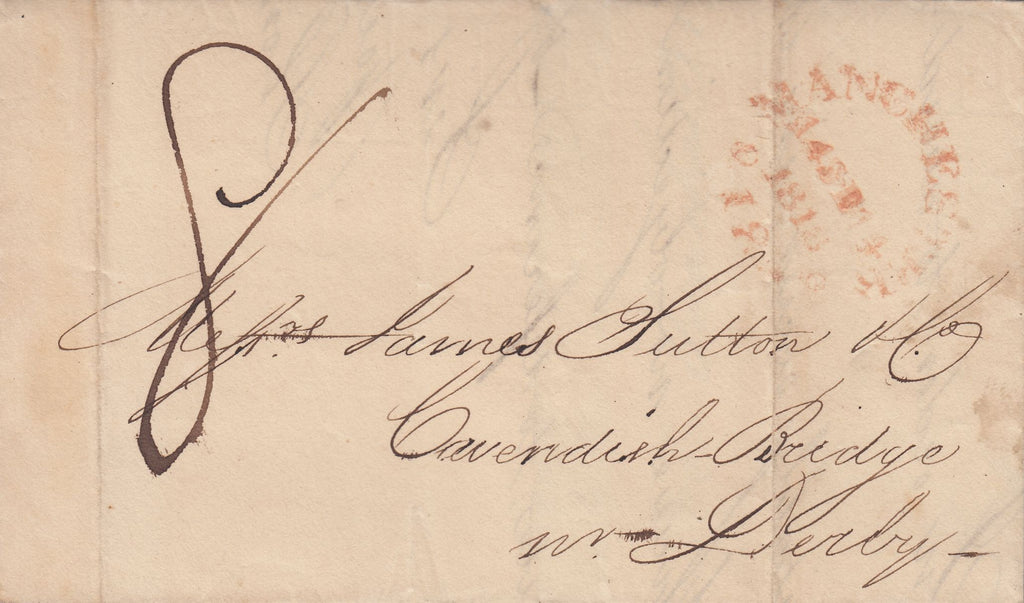 8
MANCHESTER
Messrs. James Sutton & Co
Cavendish-Bridge
nr Derby